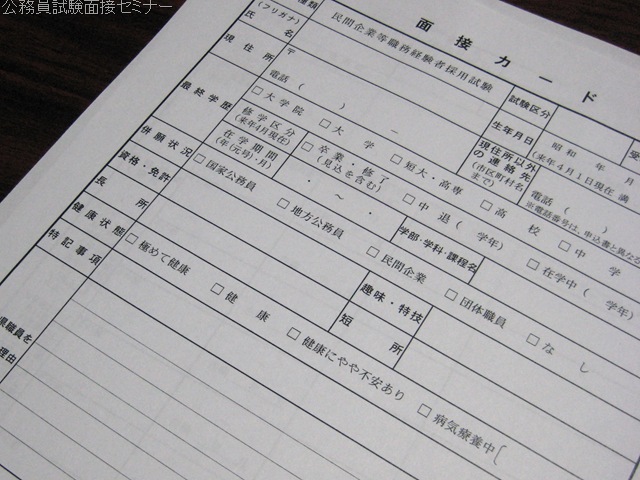 公務員試験面接セミナー
面接カード
種類
民間企業等職務経験者採用試験
試験区分
(フリガナ)
氏名
生年月日
昭和 年 月
(来年4月1日現在 満
現住所
〒
電話 ( ) －
現住所以外
の連絡先
(市区町村名
まで)
電話 (
※電話番号は、申込書と異なる
最終学歴
□ 大学院 □ 大学 □ 短大・高専 □ 高校 □ 中学
修学区分
(来年4月現在)
□ 卒業・修了
(見込を含む)
□ 中退( 学年) □ 在学中( 学年)
在学期間
(年(元号)・月)
・ ～ ・
学部・学科・課程名
併願状況
□ 国家公務員 □ 地方公務員 □ 民間企業 □ 団体職員 □ なし
資格・免許
趣味・特技
長所
短所
健康状態
□ 極めて健康 □ 健康 □ 健康にやや不安あり □ 病気療養中〔
特記事項
県職員を
理由